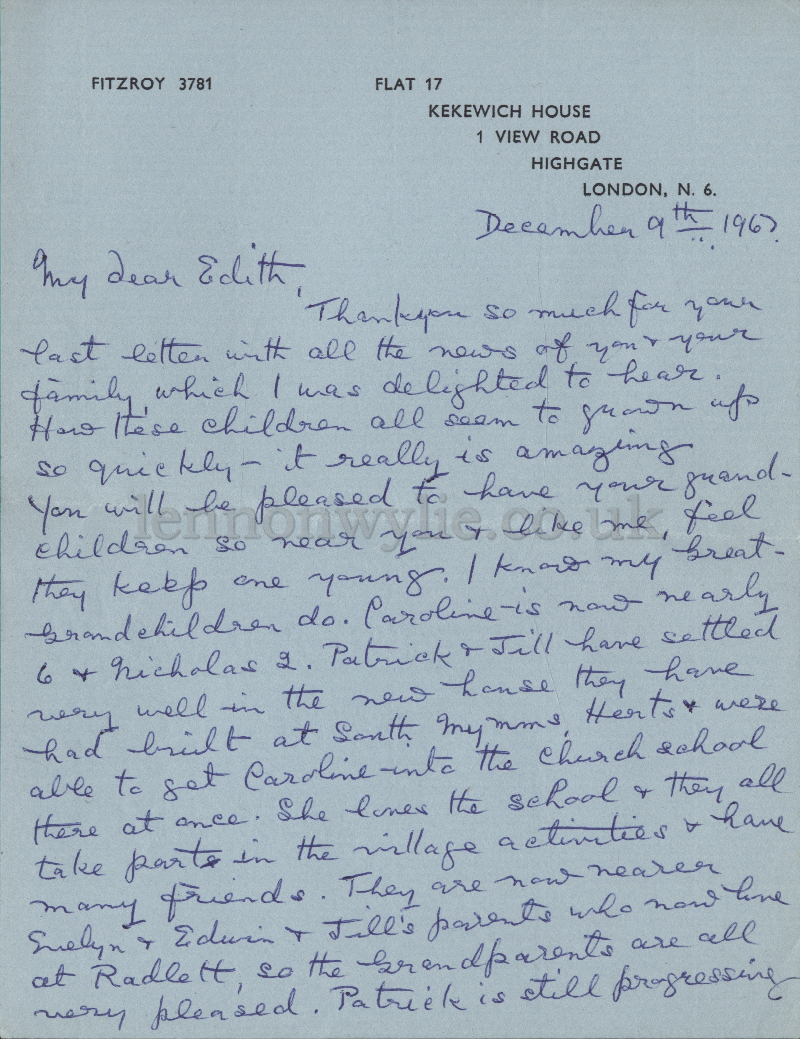 FITZROY 3781 FLAT 17
KEKEWICH HOUSE
1 VIEW ROAD
HIGHGATE
LONDON, N. 6.
December 9th 1967.
My dear Edith,
Thankyou so much for your
last letter with all the news of you & your
family, which I was delighted to hear.
How these children all seem to grown up
so quickly - it really is amazing
You will be pleased to have your grand-
lennonwylie.co.uk
children so near you & like me, feel
they keep one young. I know my Great-
Grandchildren do. Caroline is now nearly
6 & Nicholas 2. Patrick & Jill have settled
very well in the new house they have
had built at South Mymms, Herts & were
able to get Caroline into the Church school
there at once. She loves the school & they all
take parts in the village activities & have
many friends. They are now nearer
Evelyn & Edwin & Jill's parents who now live
at Radlett, so the Grandparents are all
very pleased. Patrick is still progressing